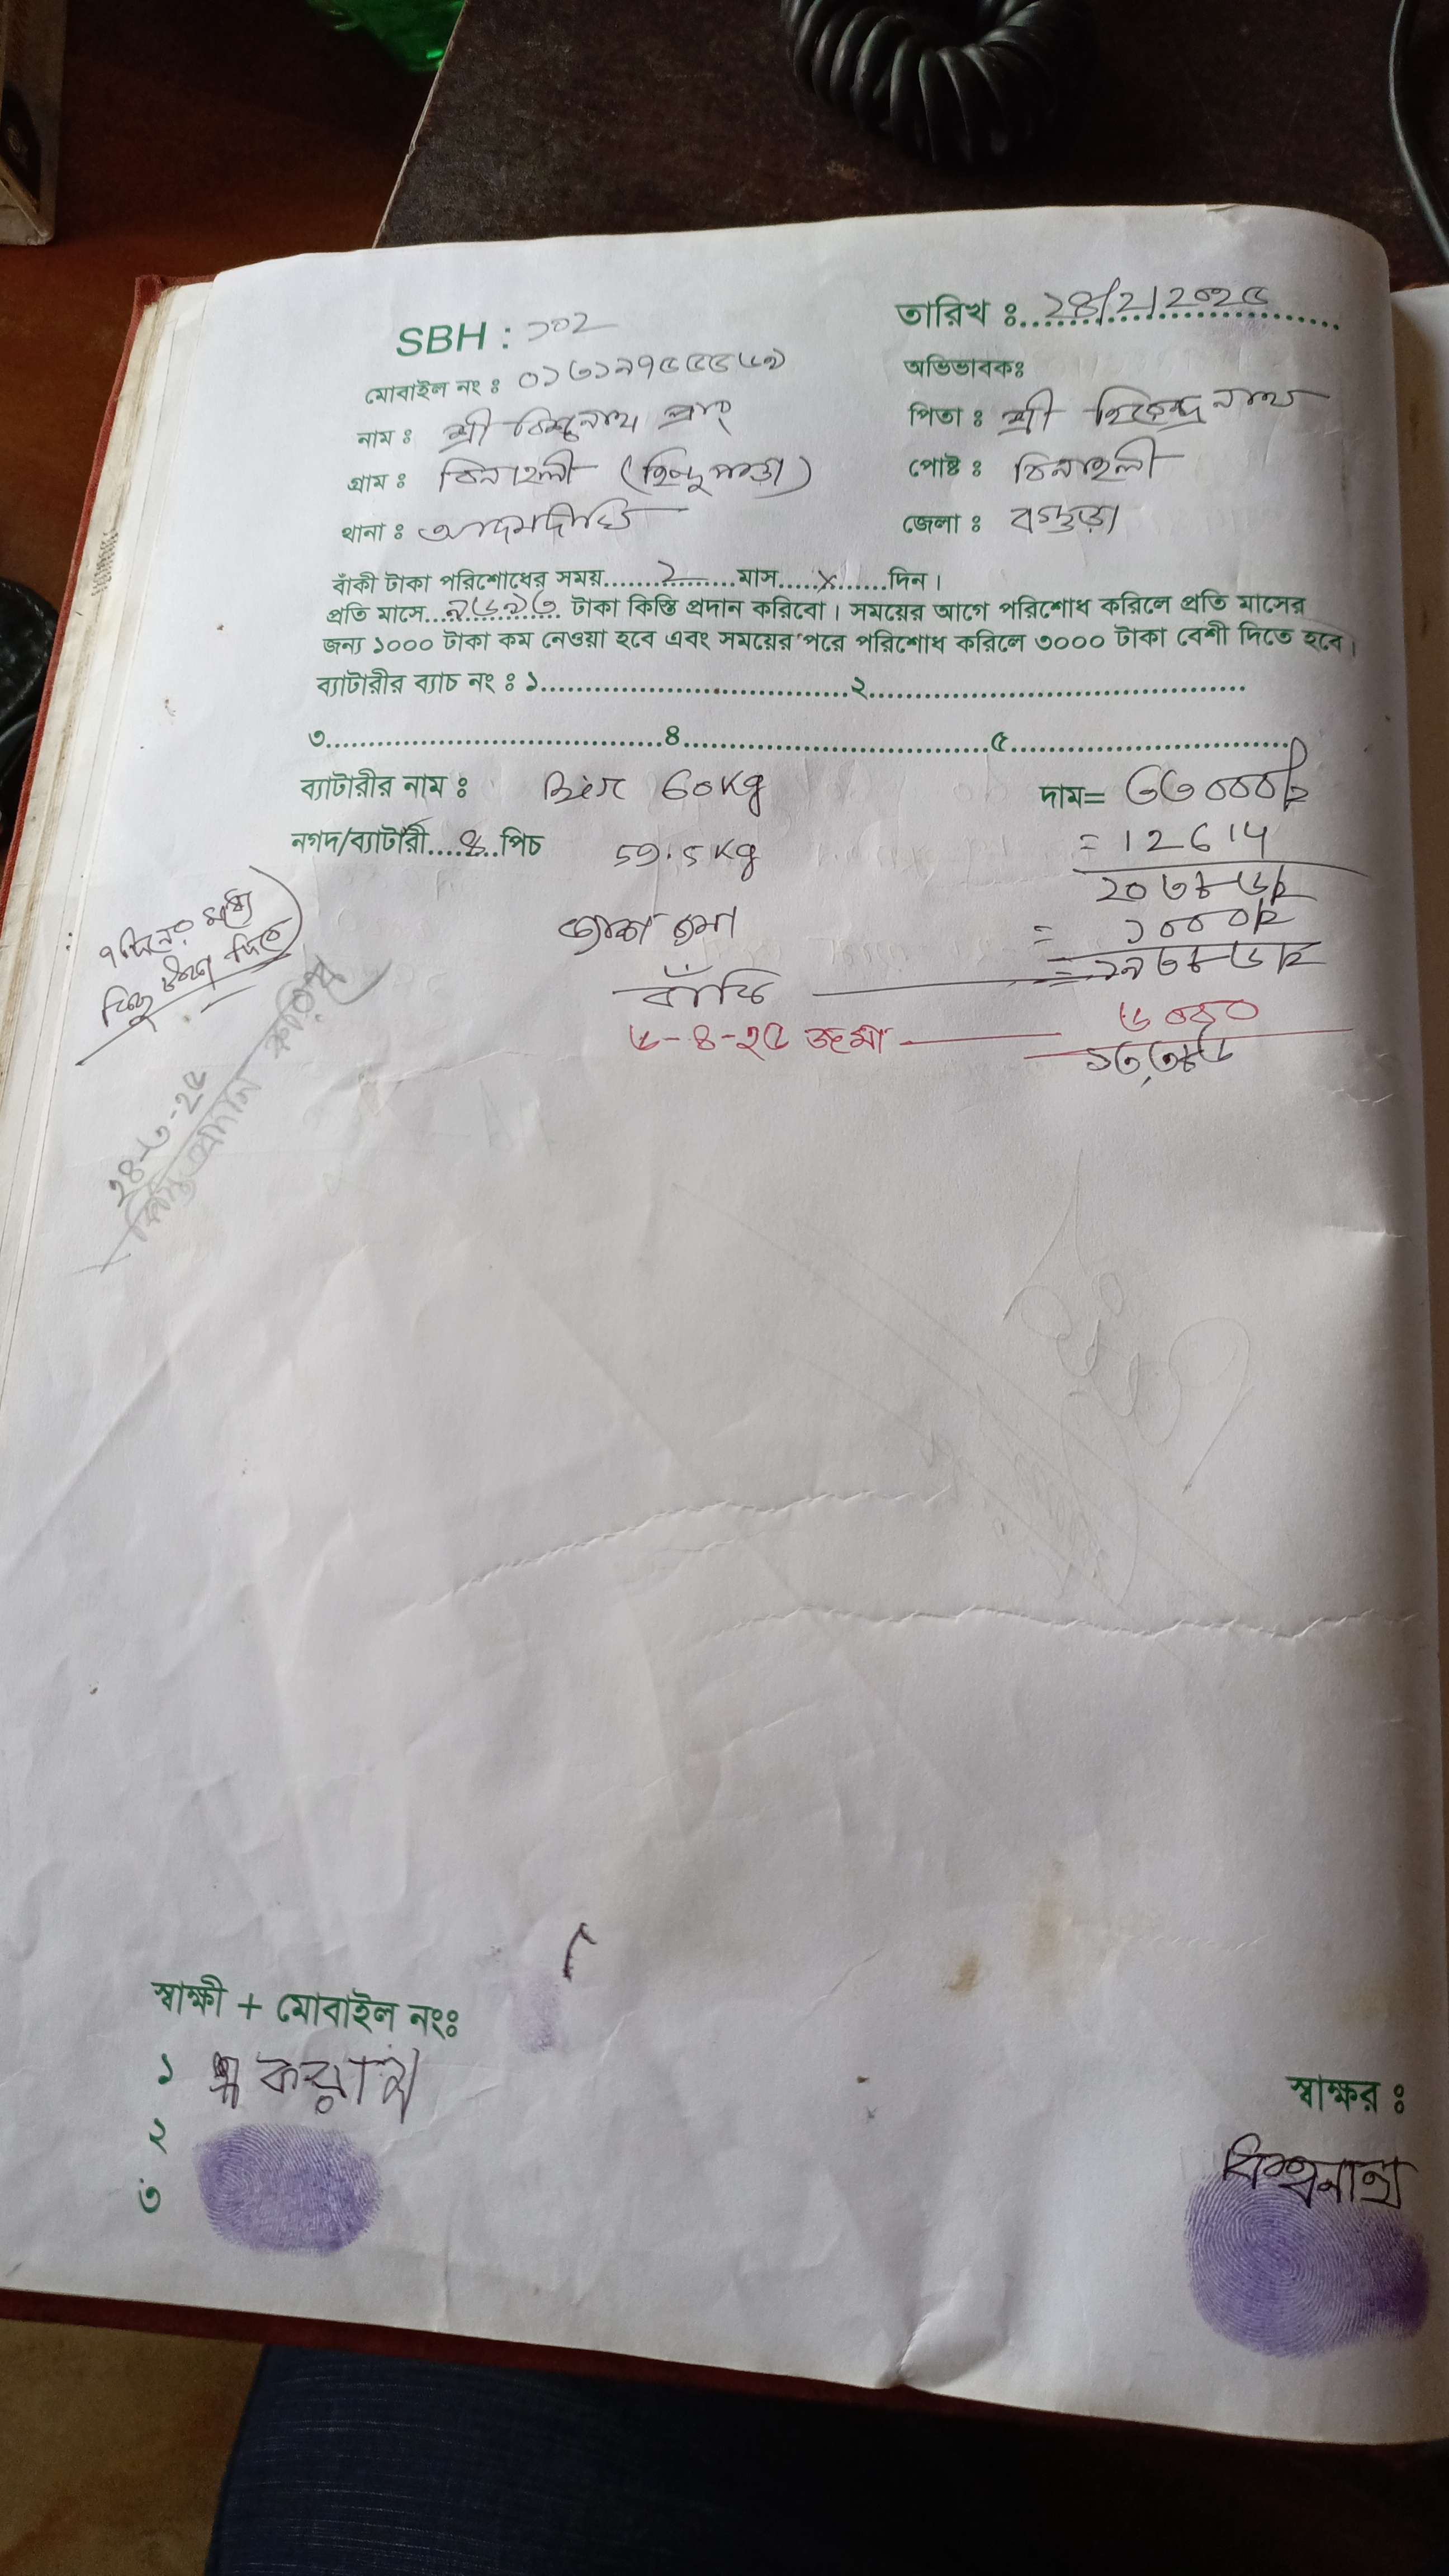 SBH : ১০২
তারিখ ঃ ২৪/২/২০২৫
মোবাইল নং ঃ
অভিভাবকঃ
নাম ঃ শ্রী বিশ্বনাথ প্রাং
পিতা ঃ শ্রী নাথ
গ্রাম ঃ বিনাহলী (হিন্দুপাড়া)
পোষ্ট ঃ বিনাহলী
থানা ঃ আদমদীঘি
জেলা ঃ বগুড়া
বাঁকী টাকা পরিশোধের সময়.......২.......মাস.....x......দিন।
প্রতি মাসে..৯৬৯৩ টাকা কিস্তি প্রদান করিবো। সময়ের আগে পরিশোধ করিলে প্রতি মাসের
জন্য ১০০০ টাকা কম নেওয়া হবে এবং সময়ের পরে পরিশোধ করিলে ৩০০০ টাকা বেশী দিতে হবে।
ব্যাটারীর ব্যাচ নং ঃ ১....................................২............................................
৩........................................৪.....................................৫.................................
ব্যাটারীর নাম ঃ 60Kg
দাম= ৩৩০০০/-
নগদ/ব্যাটারী....৪..পিচ 59.5Kg
= 12614
২০৩৮৬/-
জমা = ১০০০/-
বাঁকি = ১৯৩৮৬/-
৬-৪-২৫ জমা ৬০০০
১৩,৩৮৬
৭ দিনের মধ্যে
কিছু টাকা দিবে
২৪-৩-২৫
কিস্তি প্রদান করিব
স্বাক্ষী + মোবাইল নংঃ
১
২
৩
স্বাক্ষর ঃ
বিশ্বনাথ